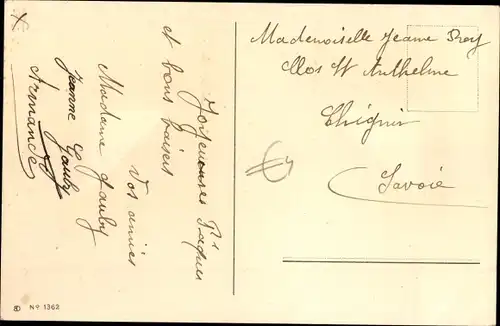 Joyeuses Pâques
et bons baisers
Vos amies
Madame Gauby
Jeanne Gauby
Armande
Mademoiselle Jeanne
Clos St Anthelme
Chignin
Savoie
№ 1362